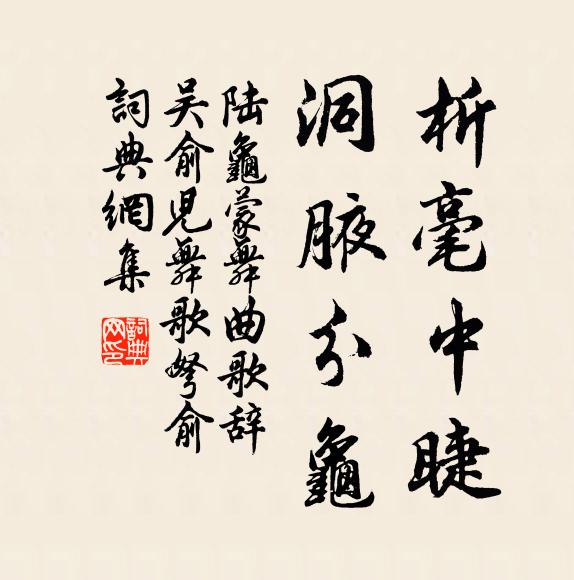 析毫中睫
洞腋分龜
陆龜蒙舞曲歌辞
吴俞児舞歌弩俞
詞典網集
詞典网印